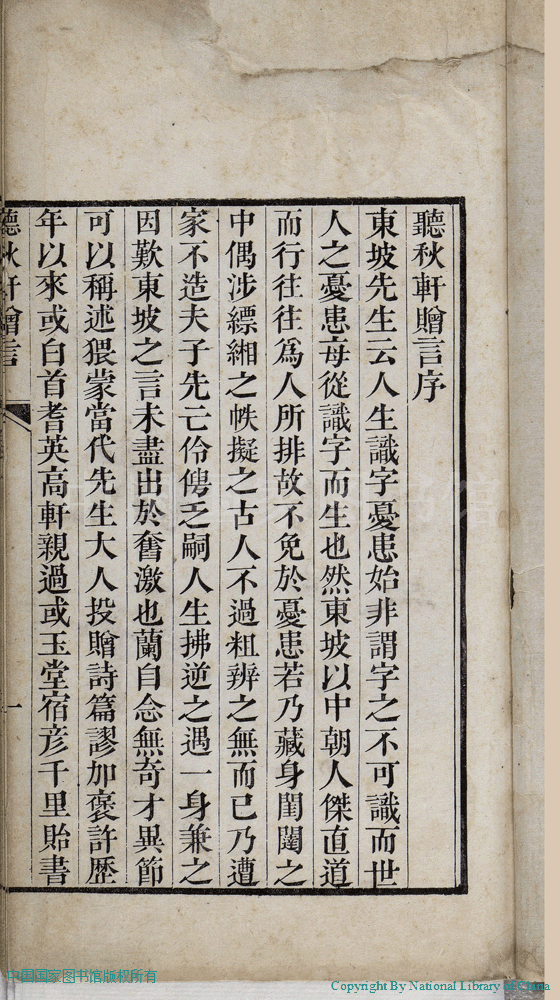 聽秋軒贈言序
東坡先生云人生識字憂患始非謂字之不可識而世
人之憂患每從識字而生也然東坡以中朝人傑直道
而行往往為人所排故不免於憂患若乃藏身閨闥之
中偶涉縹緗之帙擬之古人不過粗辨之無而已乃遭
家不造夫子先亡伶俜乏嗣人生拂逆之遇一身兼之
因歎東坡之言未盡出於奮激也蘭自念無奇才異節
可以稱述猥蒙當代先生大人投贈詩篇謬加褒許歷
年以來或白首耆英高軒親過或玉堂宿彥千里貽書
聽秋軒贈言
一
中国国家图书馆版权所有
Copyright By National Library of China